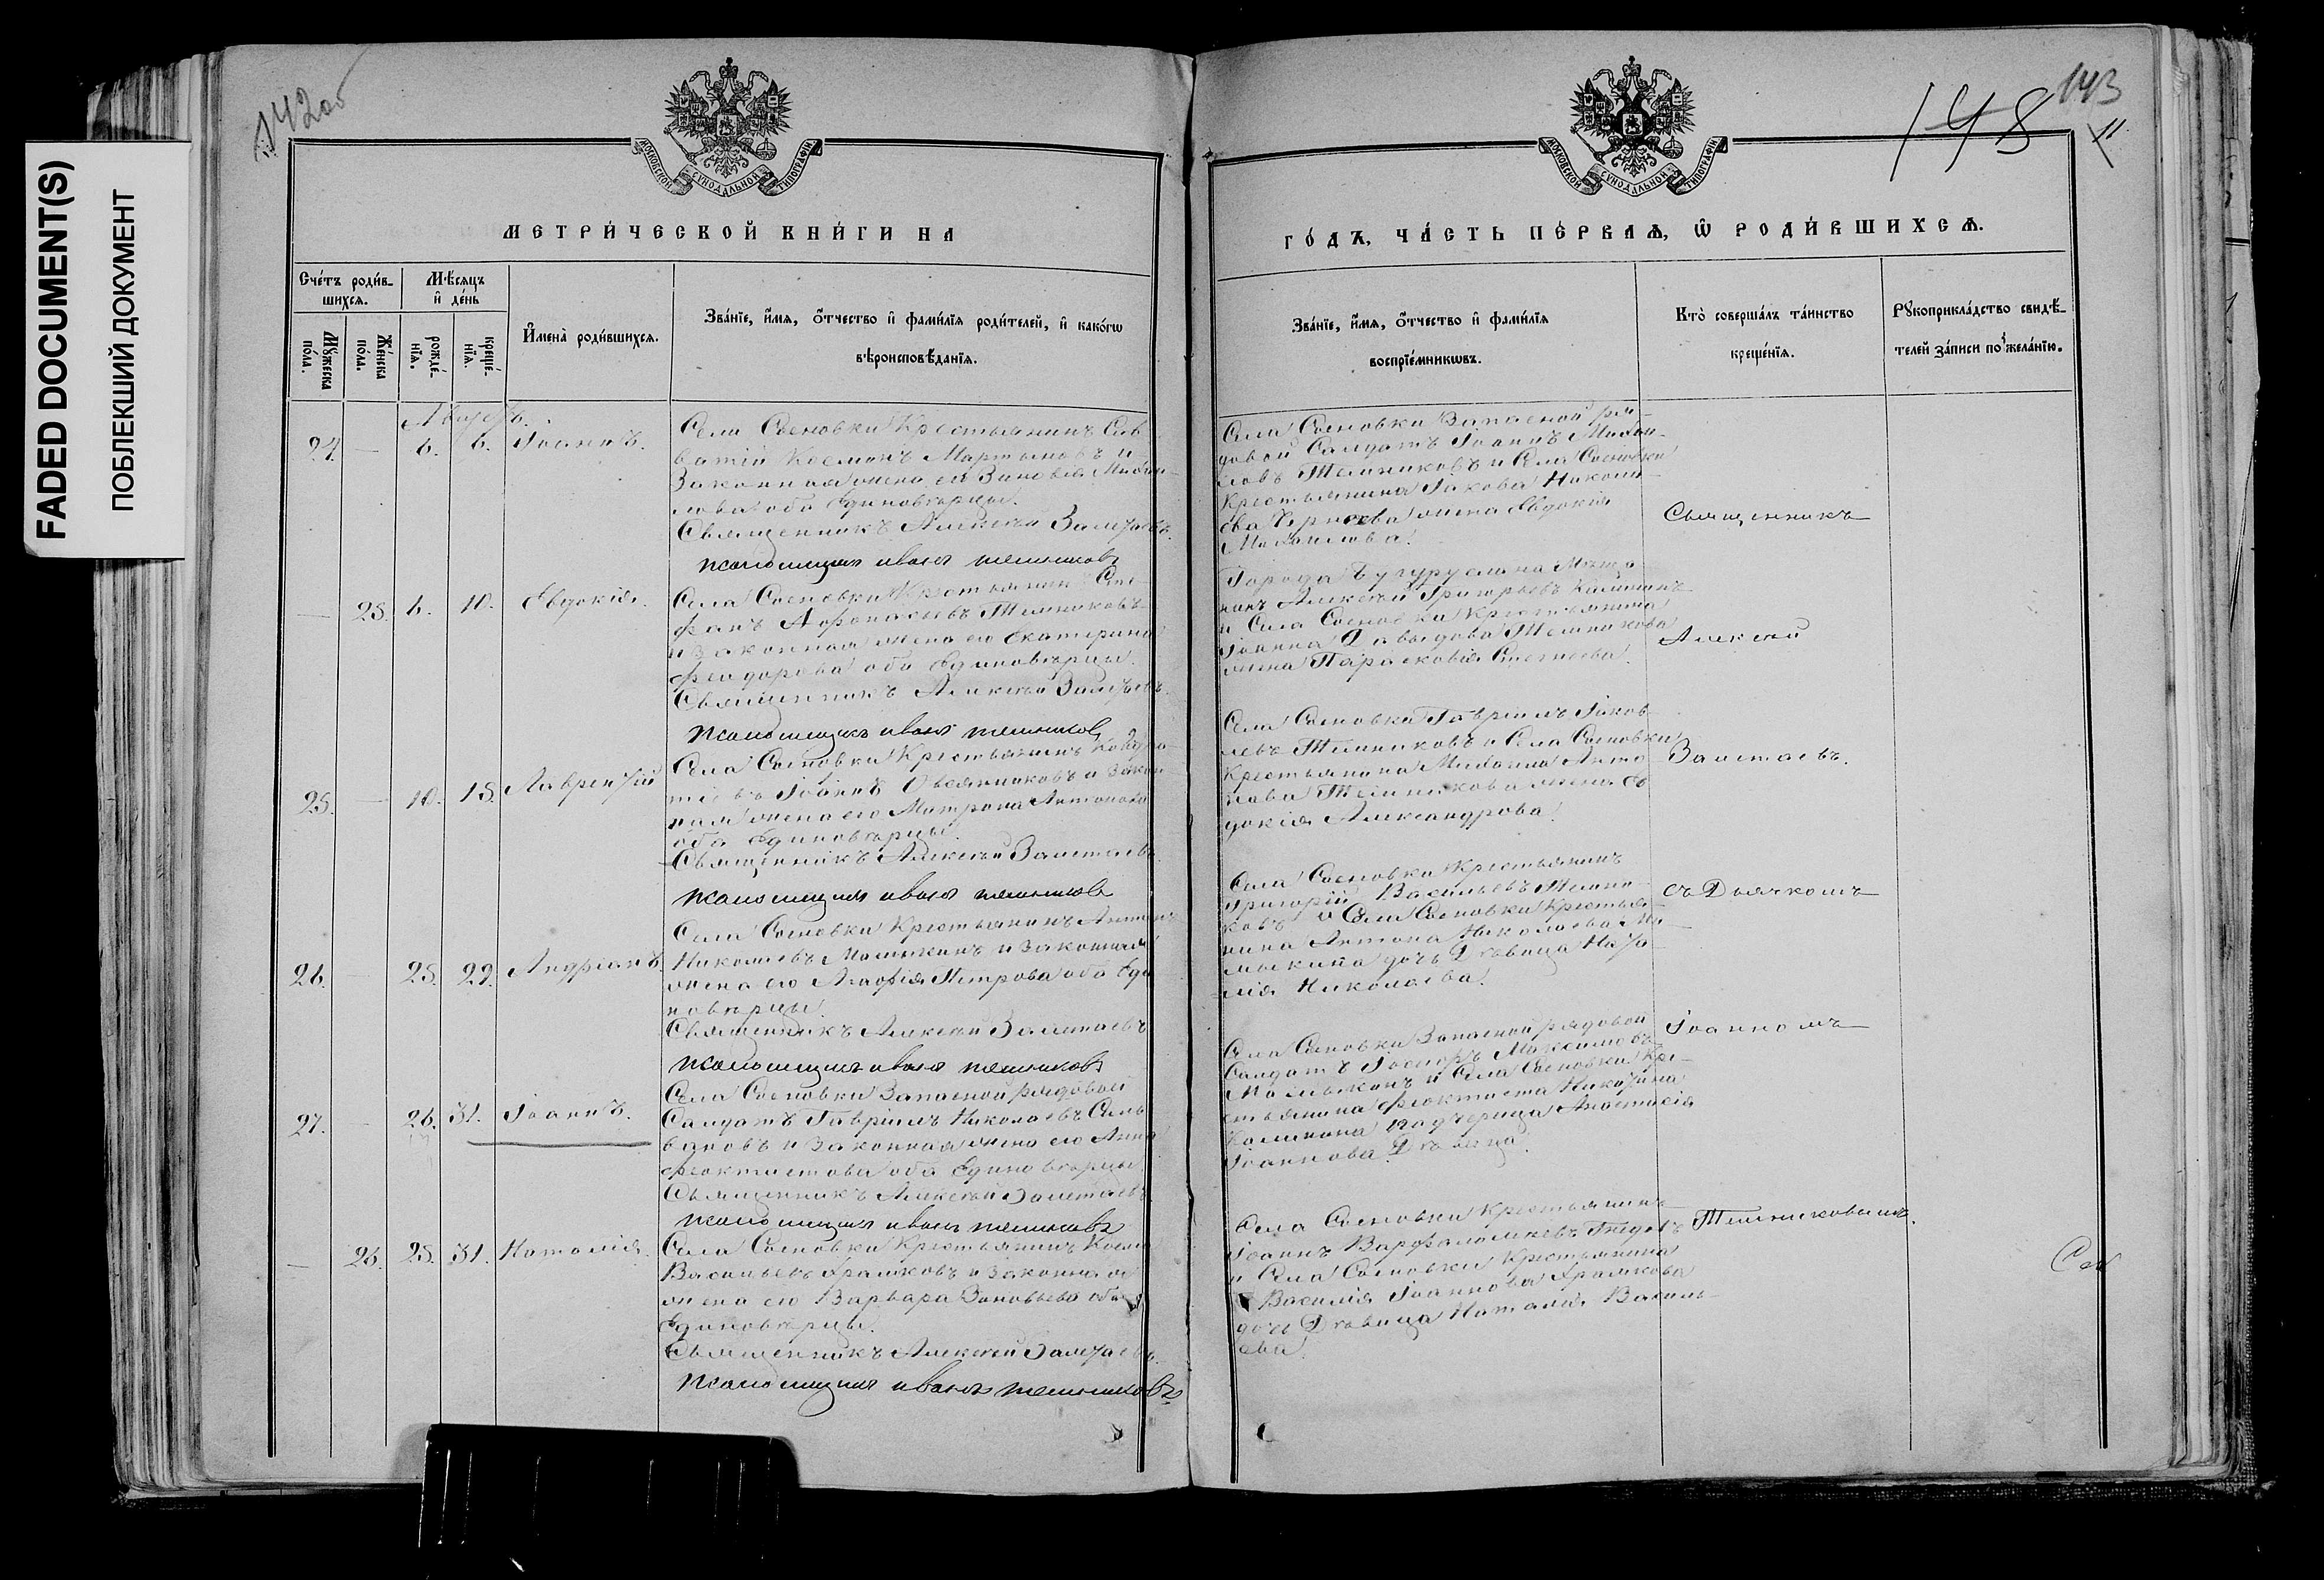 FADED DOCUMENT(S)
ПОБЛЕКШИЙ ДОКУМЕНТ
142об
МОСКОВСКОЙ СУНОДАЛЬНОЙ ТИПОГРАФІИ
МЕТРИ́ЧЕСКОЙ КНИ́ГИ НА
Сче́тъ роди́в-
шихсѧ.
Мѣ́сѧцъ
и҆ де́нь
Мꙋ́жеска
по́ла.
Же́нска
по́ла.
рожде́-
нїѧ.
креще́-
нїѧ.
И҆мена̀ роди́вшихсѧ.
Зва́нїе, и҆́мѧ, ѻ҆́тчество и҆ фами́лїѧ роди́телей, и҆ како́гѡ
вѣроисповѣ́данїѧ.
Августъ.
24. — 6. 6. Іоаннъ.
Села Сосновки Крестьянинъ Сав
ватій Косминъ Мартыновъ и
Законная жена его Зиновья Михаи-
лова оба Единоверцы.
Священникъ Алексѣй Залетаевъ.
псаломщикъ иванъ темниковъ
— 25. 6. 10. Евдокія.
Села Сосновки Крестьянинъ Сте
фанъ Афонасьевъ Темниковъ
и законная жена его Екатерина
Феодорова оба Единоверцы.
Священникъ Алексѣй Залетаевъ.
псаломщикъ иванъ темниковъ
25. — 10. 15. Лаврентій
Села Сосновки Крестьянинъ Кодра-
тій Іоановъ Овсянниковъ и Закон
ная жена его Матрона Антонова
оба Единоверцы.
Священникъ Алексѣй Залетаевъ
псаломщикъ иванъ темниковъ
26. — 25. 29. Андріанъ.
Села Сосновки Крестьянинъ Антонъ
Николаевъ Малыкинъ и Законная
жена его Агафія Петрова оба Еди
новерцы.
Священникъ Алексѣй Залетаевъ
псаломщикъ иванъ темниковъ
27. — 26. 31. Іоаннъ.
Села Сосновки Запасной рядовой
Салдатъ Гавріилъ Николаевъ Сели
вановъ и Законная жена его Анна
Феоктистова оба Единоверцы.
Священникъ Алексѣй Залетаевъ
псаломщикъ иванъ темниковъ
— 26. 25. 31. Наталія.
Села Сосновки Крестьянинъ Косма
Васильевъ Храмковъ и Законная
жена его Варвара Зиновьева оба
Единоверцы.
Священникъ Алексѣй Залетаевъ.
псаломщикъ иванъ темниковъ
148
143
МОСКОВСКОЙ СУНОДАЛЬНОЙ ТИПОГРАФІИ
ГО́ДЪ, ЧА́СТЬ ПЕ́РВАѦ, Ѡ҆ РОДИ́ВШИХСѦ.
Зва́нїе, и҆́мѧ, ѻ҆́тчество и҆ фами́лїѧ
воспрїе́мникѡвъ.
Кто̀ соверша́лъ та́инство
креще́нїѧ.
Рꙋкоприкла́дство свидѣ́-
телей за́писи по жела́нїю.
Села Сосновки Запасной ря-
довой Салдатъ Іоаннъ Михаи-
ловъ Темниковъ и Села Сосновки
Крестьянина Іакова Никола-
ева жена Евдокія
Михаилова.
Города Бугуруслана Мѣща
нинъ Алексѣй Григорьевъ Калининъ
и Села Сосновки Крестьянина
Іоанна Давыдова Темникова
жена Парасковія
Села Сосновки Гавріилъ Іаков
левъ Темниковъ и Села Сосновки
Крестьянина Михаила Анто
нова Темникова жена Ев
докія Александрова.
Села Сосновки Крестьянинъ
Григорій Васильевъ Темни-
ковъ и Села Сосновки Крестья-
нина Антона Николаева Ма-
лыкина дочь Девица Ната
лія Николаева.
Села Сосновки Запасной рядовой
Салдатъ Максимовъ
Малыкинъ и Села Сосновки Кре-
стьянина Феоктиста Никитина
Калинина падчерица Анастасія
Іоаннова Девица.
Села Сосновки Крестьянинъ
Іоаннъ Варфаломеевъ
и Села Сосновки Крестьянина
Василія Іоаннова Храмкова
дочь Девица Наталія Василь-
ева
Священникъ
Алексей
Залетаевъ.
съ Дьячкомъ
Іоанномъ
Темниковымъ.